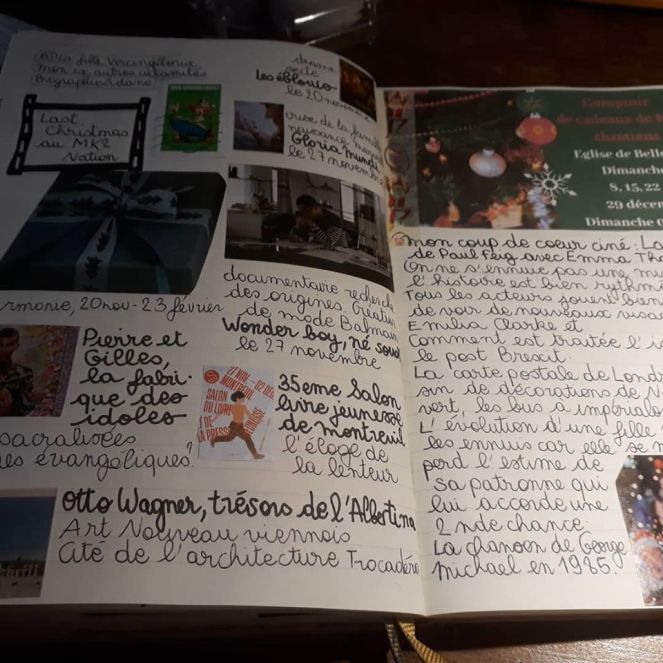 fille Vercingétorix
mon ex, autres calamités
Biographie
Last
Christmas
au MK2
Nation
drame
secte
Les éblouis
le 20 novembre
crise de la famille
naissance
Gloria mundi
le 27 novembre
documentaire recherche
des origines, Créateur
de mode Balmain
Wonder boy, né sous
le 27 novembre
armonie, 20 nov - 23 février
Pierre et
Gilles,
la fabri-
que des
idoles
sacralisées
évangéliques?
27 NOV.
- 02 DEC.
MONTREUIL
SALON
DU LIVRE
ET DE
LA PRESSE
JEUNESSE
35eme Salon
livre jeunesse
de montreuil
l'éloge de
la lenteur
Otto Wagner, trésors de l'Albertina
Art Nouveau viennois
Cité de l'architecture Trocadéro
Comptoir
de cadeaux de
chrétiens
Eglise de Belle
Dimanche
8, 15, 22
29 décem
Dimanche
mon coup de coeur ciné : La
de Paul Feig avec Emma Tho
On ne s'ennuie pas une mi
l'histoire est bien rythm
Tous les acteurs jouent bien
de voir de nouveaux visa
Emilia Clarke et
Comment est traitée l'i
le post Brexit.
La carte postale de Lond
sin de décorations de N
vert, les bus a impériale
L'évolution d'une fille
les ennuis car elle se m
perd l'estime de
sa patronne qui
lui accorde une
2nde chance.
La chanson de George
michael en 1985.